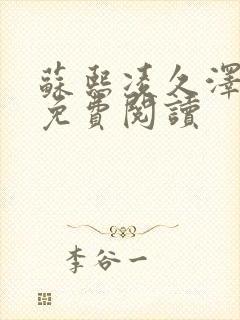 蘇熙凌久澤
免費閱讀
李谷一